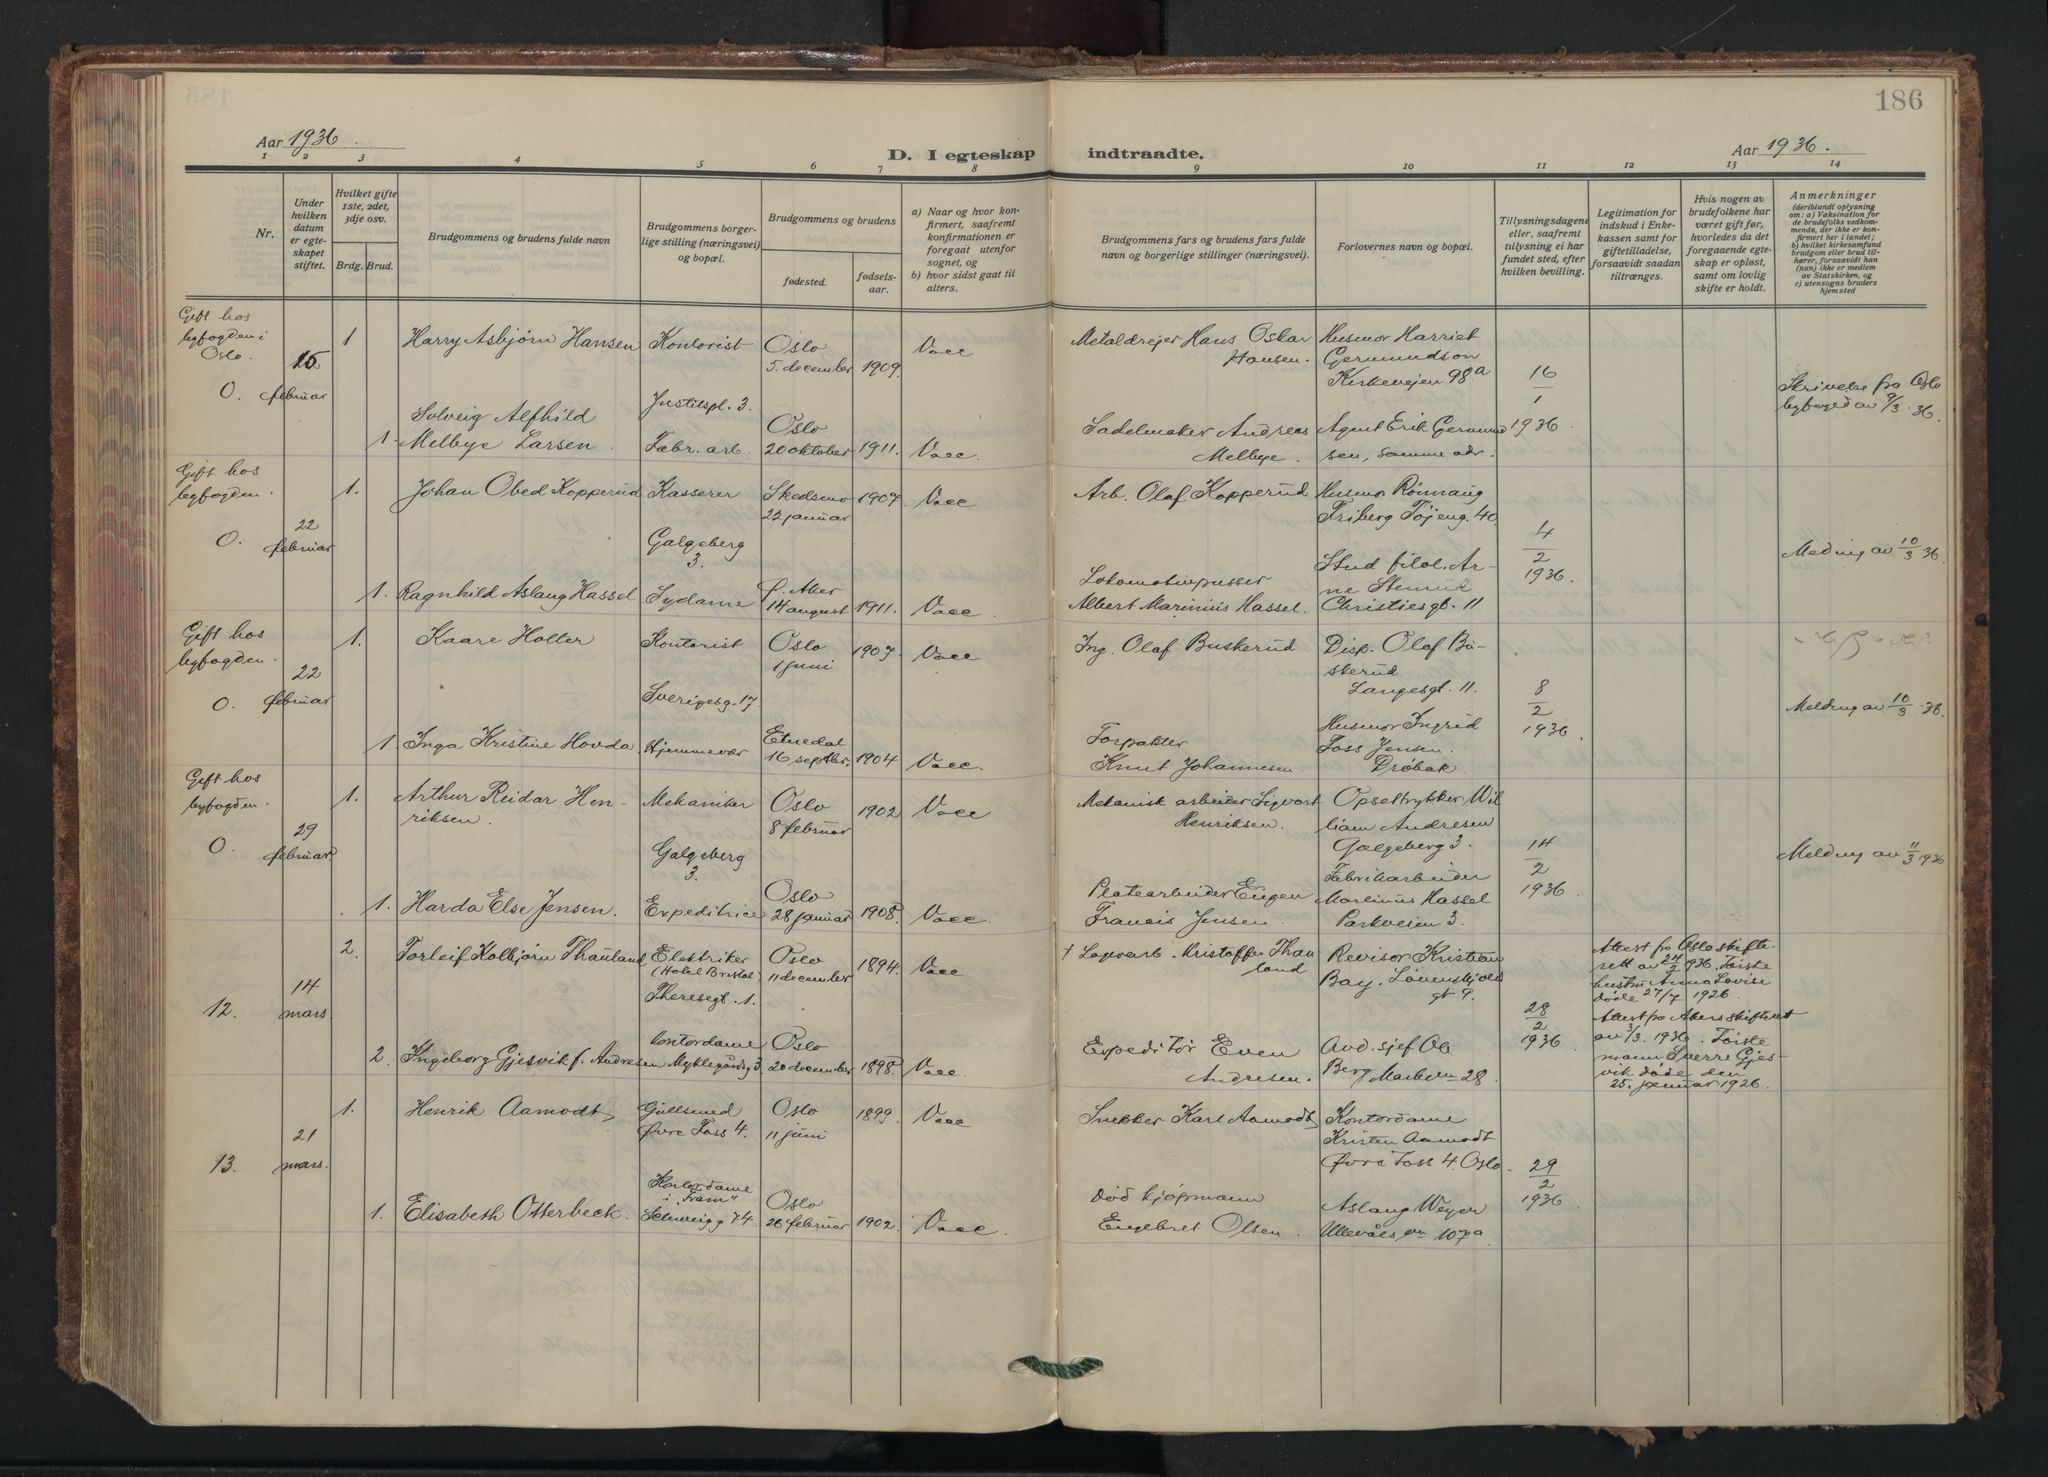 185
186
Aar 1936.
D. I egteskap indtraadte.
Aar 1936.
1 2 3 4 5 6 7 8 9 10 11 12 13 14
Nr.
Under hvilken datum er egteskapet stiftet.
Hvilket gifte 1ste, 2det, 3dje osv.
Brdg. Brud.
Brudgommens og brudens fulde navn
Brudgommens borgerlige stilling (næringsvei) og bopæl.
Brudgommens og brudens
fødested.
fødselsaar.
a) Naar og hvor konfirmert, saafremt konfirmationen er foregaat utenfor sognet, og
b) hvor sidst gaat til alters.
Brudgommens fars og brudens fars fulde navn og borgerlige stillinger (næringsvei).
Forlovernes navn og bopæl.
Tillysningsdagene eller, saafremt tillysning ei har fundet sted, efter hvilken bevilling.
Legitimation for indskud i Enkekassen samt for giftetilladelse, forsaavidt saadan tiltrænges.
Hvis nogen av brudefolkene har været gift før, hvorledes da det foregaaende egteskap er opløst, samt om lovlig skifte er holdt.
Anmerkninger
(deriblandt oplysning om: a) Vaksination for de brudefolks vedkommende, der ikke er konfirmert her i landet; b) hvilket kirkesamfund brudgom eller brud tilhører, forsaavidt han (hun) ikke er medlem av Statskirken, og c) utensogns bruders hjemsted
Gift hos
byfogden i
Oslo.
O.
15
februar
1 Harry Asbjørn Hansen Kontorist Oslo
5. december 1909. Vacc
Metaldrejer Hans Oskar
Hansen.
Husmor Harriet
Germundson
Kirkeveien 98a
16
1
1936.
Skrivelse fra Oslo
byfoged av 9/3-36.
Justitspl. 3.
Solveig Alfhild
1. Melbye Larsen. Fabr. arb. Oslo
20 oktober 1911. Vacc.
Sadelmaker Andreas
Melbye.
Agent Erik Germund
sen, samme adr.
Gift hos
byfogden.
O.
22
februar
1. Johan Obed Kopperud Kasserer Skedsmo
22 januar 1907. Vacc
Galgeberg
3.
Arb. Olaf Kopperud
Husmor Rønnaug
Friberg Tøjeng. 40
4
2
1936.
Melding av 10/3 36
1. Ragnhild Aslaug Hassel Sydame f. Aker
14 august 1911. Vacc.
Lokomotivpusser
Albert Marinius Hassel.
Stud filol. Ar-
ne Stenrud
Christiesgt. 11
Gift hos
byfogden.
O.
22
februar
1. Kaare Holter Kontorist Oslo
1 juni 1907. Vacc
Sverigesg. 17
Ing. Olaf Buskerud
Disp. Olaf Bu-
skerud
Langesgt. 11.
8
2
1936.
Melding av 10/3-36.
1. Inga Kristine Hovda Hjemmevær Etnedal
16 septbr. 1904 Vacc.
Forpakter
Knut Johannesen.
Husmor Ingrid
Foss Jensen.
Drøbak.
Gift hos
byfogden.
O.
29
februar
1. Arthur Reidar Hen-
riksen.
Mekaniker
Galgeberg
3.
Oslo
8 februar 1902 Vacc
Mekanisk arbeider Sigvart
Henriksen.
Opsettrykker Wil
liam Andresen
Galgeberg 3.
14
2
1936.
Melding av 11/3 1936
1. Harda Else Jensen. Expeditrice Oslo
28 januar 1908. Vacc.
Platearbeider Eugen
Francis Jensen
Fabrikarbeider
Marinius Hassel
Parkveien 3.
12.
14
mars.
2. Torleif Kolbjørn Thauland Elektriker
(Hotel Bristol)
Theresegt. 1.
Oslo
11 december 1894. Vacc
† Lagerarb. Kristoffer Thau-
land
Revisor Kristian
Bay. Løvenskjolds
gt 9.
28
2
1936
Attest fra Oslo skifte-
rett av 24/2 1936. Første
hustru Anna Lovise
døde 27/7 1926.
2. Ingeborg Gjesvik f. Andresen
Kontordame
Myklegårdsg 3.
Oslo
20 december 1898. Vacc.
Expeditør Even
Andresen.
Avd. sjef Ole
Berg
Attest fra Akers skifterett
av 3/3. 1936. Første
mann Sverre Gjes-
vik døde den
25. januar 1926.
13.
21
mars.
1. Henrik Aamodt Gullsmed
Øvre Foss 4.
Oslo
11 juni 1899. Vacc
Snekker Karl Aamodt
Kontordame
Kristen Aamodt
Øvre Foss 4. Oslo.
29
2
1936
1. Elisabeth Otterbeck. Kontordame
i "Fram"
Schweigg 74.
Oslo
26 februar 1902. Vacc.
død kjøpmann
Engebret Olsen.
Aslaug Weyer
Ullevålsvn 107a.